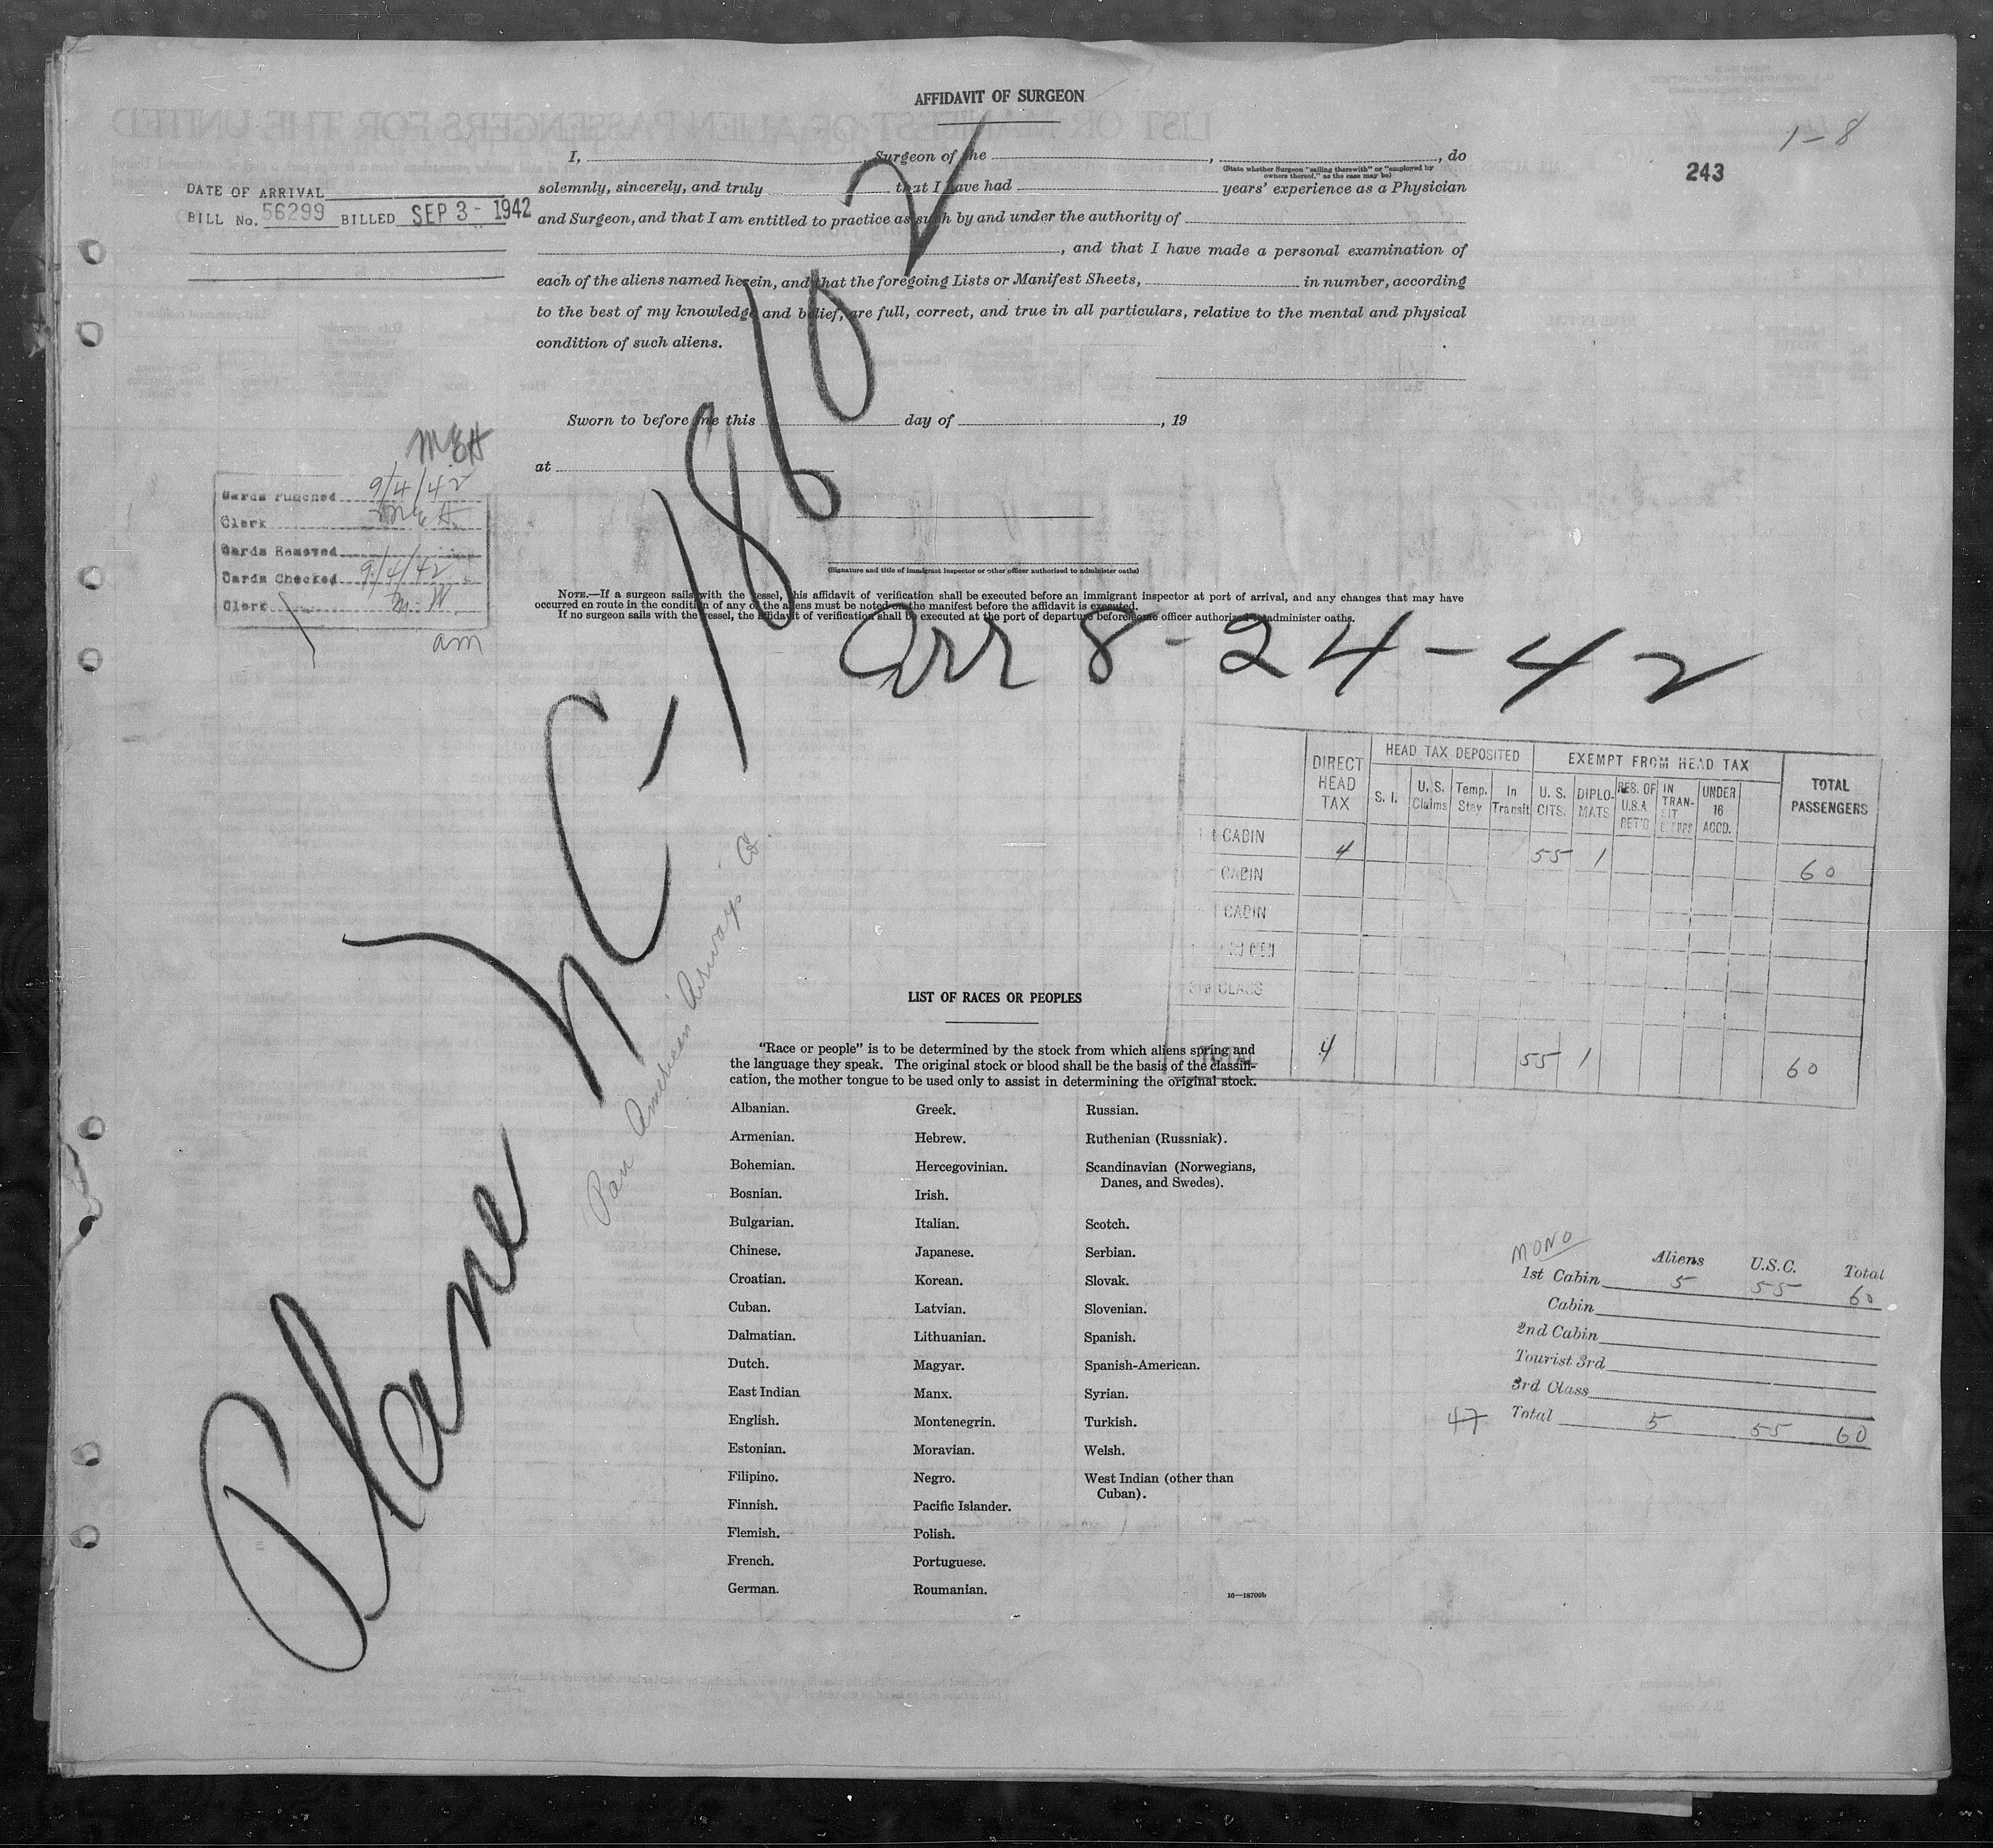 AFFIDAVIT OF SURGEON
1-8
243
I, Surgeon of the , , do
(State whether Surgeon "sailing therewith" or "employed by owners thereof," as the case may be)
solemnly, sincerely, and truly that I have had years' experience as a Physician
and Surgeon, and that I am entitled to practice as such by and under the authority of
, and that I have made a personal examination of
each of the aliens named herein, and that the foregoing Lists or Manifest Sheets, in number, according
to the best of my knowledge and belief, are full, correct, and true in all particulars, relative to the mental and physical
condition of such aliens.
DATE OF ARRIVAL
BILL No. 56299 BILLED SEP 3 - 1942
Sworn to before me this day of , 19
at
(Signature and title of immigrant inspector or other officer authorized to administer oaths)
NOTE.—If a surgeon sails with the vessel, this affidavit of verification shall be executed before an immigrant inspector at port of arrival, and any changes that may have
occurred en route in the condition of any of the aliens must be noted on the manifest before the affidavit is executed.
If no surgeon sails with the vessel, the affidavit of verification shall be executed at the port of departure before some officer authorized to administer oaths.
MEH
Cards Punched 9/4/42
Clerk MEH
Cards Removed
Cards Checked 9/4/42
Clerk M.W.
am
Plane NC-18602
Pan American Airways Co.
Arr 8-24-42
DIRECT HEAD TAX
HEAD TAX DEPOSITED
EXEMPT FROM HEAD TAX
TOTAL PASSENGERS
S. I. U. S. Claims Temp. Stay In Transit U. S. CITS. DIPLO-MATS RES. OF U.S.A. RET'D IN TRAN-SIT UNDER 16 ACCD.
CABIN 4 55 1 60
CABIN
CABIN
CLASS
TOTAL 4 55 1 60
LIST OF RACES OR PEOPLES
"Race or people" is to be determined by the stock from which aliens spring and
the language they speak. The original stock or blood shall be the basis of the classifi-
cation, the mother tongue to be used only to assist in determining the original stock.
Albanian.
Armenian.
Bohemian.
Bosnian.
Bulgarian.
Chinese.
Croatian.
Cuban.
Dalmatian.
Dutch.
East Indian
English.
Estonian.
Filipino.
Finnish.
Flemish.
French.
German.
Greek.
Hebrew.
Hercegovinian.
Irish.
Italian.
Japanese.
Korean.
Latvian.
Lithuanian.
Magyar.
Manx.
Montenegrin.
Moravian.
Negro.
Pacific Islander.
Polish.
Portuguese.
Roumanian.
Russian.
Ruthenian (Russniak).
Scandinavian (Norwegians,
Danes, and Swedes).
Scotch.
Serbian.
Slovak.
Slovenian.
Spanish.
Spanish-American.
Syrian.
Turkish.
Welsh.
West Indian (other than
Cuban).
16—18709b
MONO
Aliens U.S.C. Total
1st Cabin 5 55 60
Cabin
2nd Cabin
Tourist 3rd
3rd Class
47 Total 5 55 60